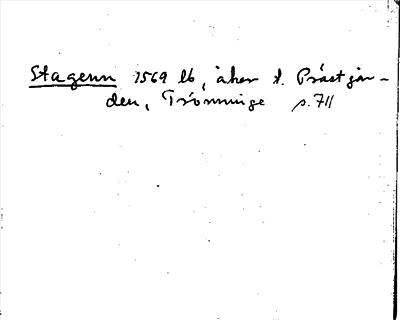 Stagenn 1569 lb, åker t. Prästgår-
den, Trönninge p. 711